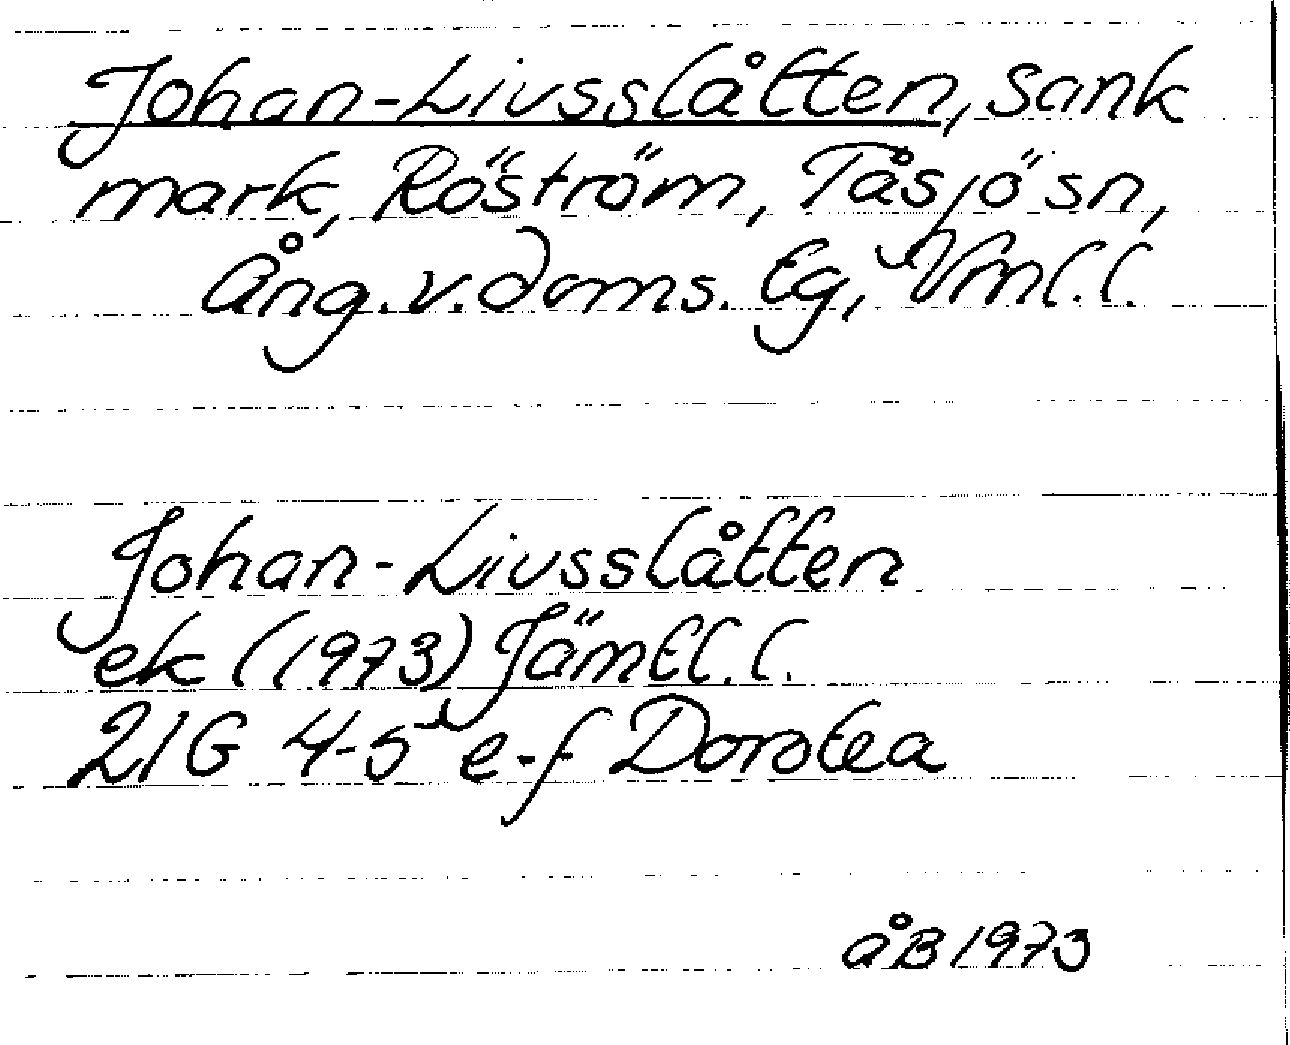 Johan-Liusslåtten, sank
mark, Röström, Tåsjö sn,
Ång. v. doms. lg, Vrnl.l.
Johan-Liusslåtten
ek (1973) Jämtl.l.
21G 4-5 e-f Dorotea
åB 1973